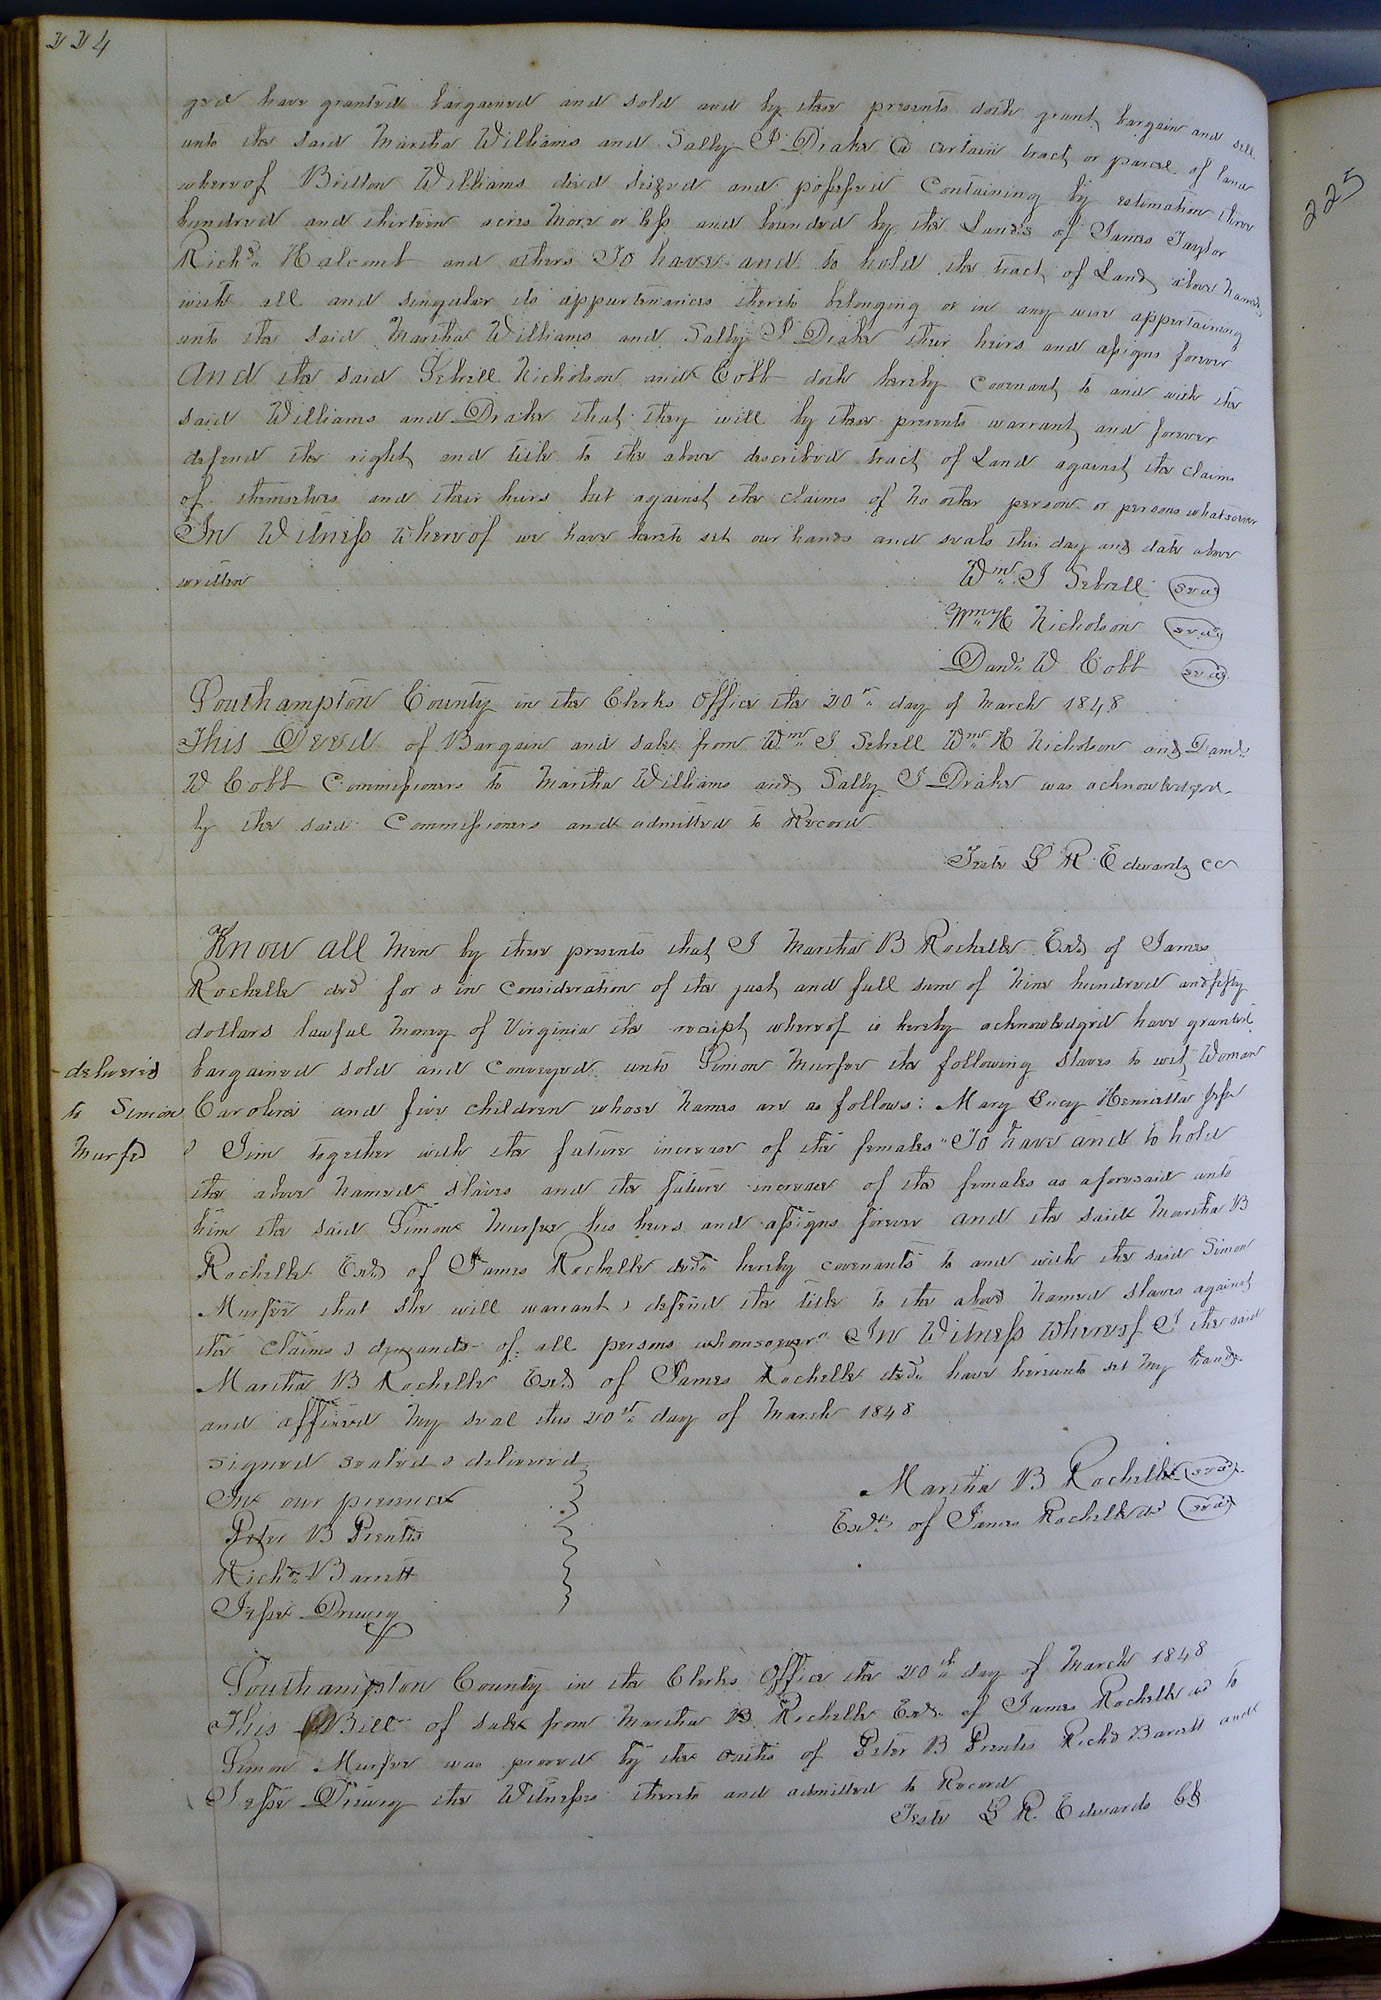 224
225
ged have granted bargained and sold and by these presents doth grant bargain and sell
unto the said Martha Williams and Sally I Drake a certain tract or parcel of land
whereof Britton Williams died seized and possessed Containing by estimation three
hundred and thirteen acres more or less and bounded by the Lands of James Taylor
Richd. Halcomb and others To have and to hold the tract of Land above named
with all and singular its appurtenances thereto belonging or in any wise appertaining
unto the said Martha Williams and Sally I Drake their heirs and assigns forever
And the said Sebrell Nicholson and Cobb doth hereby Covenant to and with the
said Williams and Drake that they will by these presents warrant and forever
defend the right and title to the above described tract of Land against the claims
of themselves and their heirs but against the claims of no other person or persons whatsoever
In Witness whereof we have hereto set our hands and seals this day and date above
written
Wm. I Sebrell seal
Wm. H Nicholson seal
Danl. W Cobb seal
Southampton County in the Clerks Office the 20th day of March 1848
This Deed of Bargain and sale from Wm. I Sebrell Wm. H Nicholson and Danl.
W Cobb Commissioners to Martha Williams and Sally I Drake was acknowledged
by the said Commissioners and admitted to Record
Teste L R Edwards CC
Know all Men by these presents that I Martha B Rochelle Exx of James
Rochelle decd for & in Consideration of the just and full sum of Nine hundred and fifty
dollars lawful money of Virginia the receipt whereof is hereby acknowledged have granted
bargained sold and Conveyed unto Simon Murfee the following slaves to wit, Woman
Caroline and five children whose names are as follows: Mary Lucy Henrietta Jesse
& Jim together with the future increase of the females To have and to hold
the above named slaves and the future increase of the females as aforesaid unto
him the said Simon Murfee his heirs and assigns forever And the said Martha B
Rochelle Exx of James Rochelle decd. hereby covenants to and with the said Simon
Murfee that she will warrant & defend the title to the above named slaves against
the claims & demands of all persons whomsoever In Witness Whereof I the said
Martha B Rochelle Exx of James Rochelle decd. have hereunto set my hand
and affixed my seal this 20th day of March 1848
delivered
to Simon
Murfee
signed sealed & delivered
In our presence
Peter B Prentis
Richd. Barrett
Jesse Drewry
Martha B Rochelle seal
Exx of James Rochelle de seal
Southampton County in the Clerks Office the 20th day of March 1848
This Bill of sale from Martha B Rochelle Exx of James Rochelle to
Simon Murfee was proved by the oaths of Peter B Prentis Richd Barrett and
Jesse Drewry the Witnesses thereto and admitted to Record
Teste L R Edwards Clk